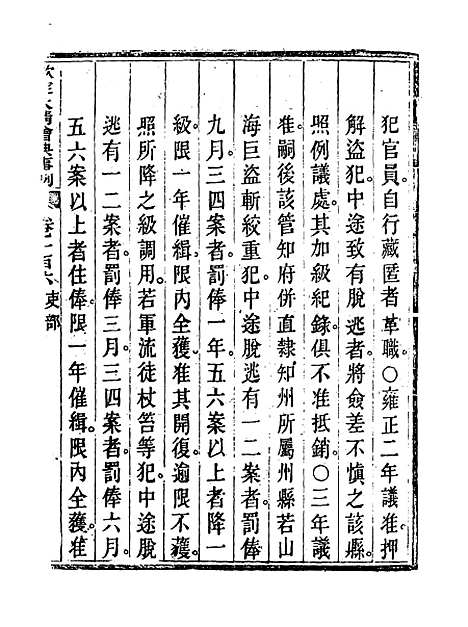 犯官員。自行藏匿者革職。○雍正二年議准。押
解盜犯。中途致有脫逃者。將僉差不慎之該縣。
照例議處。其加級紀錄。俱不准抵銷。○三年議
准。嗣後該管知府併直隸知州所屬州縣。若山
海巨盜斬絞重犯。中途脫逃。有一二案者。罰俸
九月。三四案者。罰俸一年。五六案以上者。降一
級。限一年催緝。限內全獲。准其開復。逾限不獲。
照所降之級調用。若軍流徒杖笞等犯。中途脫
逃。有一二案者。罰俸三月。三四案者。罰俸六月。
五六案以上者。住俸。限一年催緝。限內全獲。准
欽定大清會典事例 卷一百六 吏部